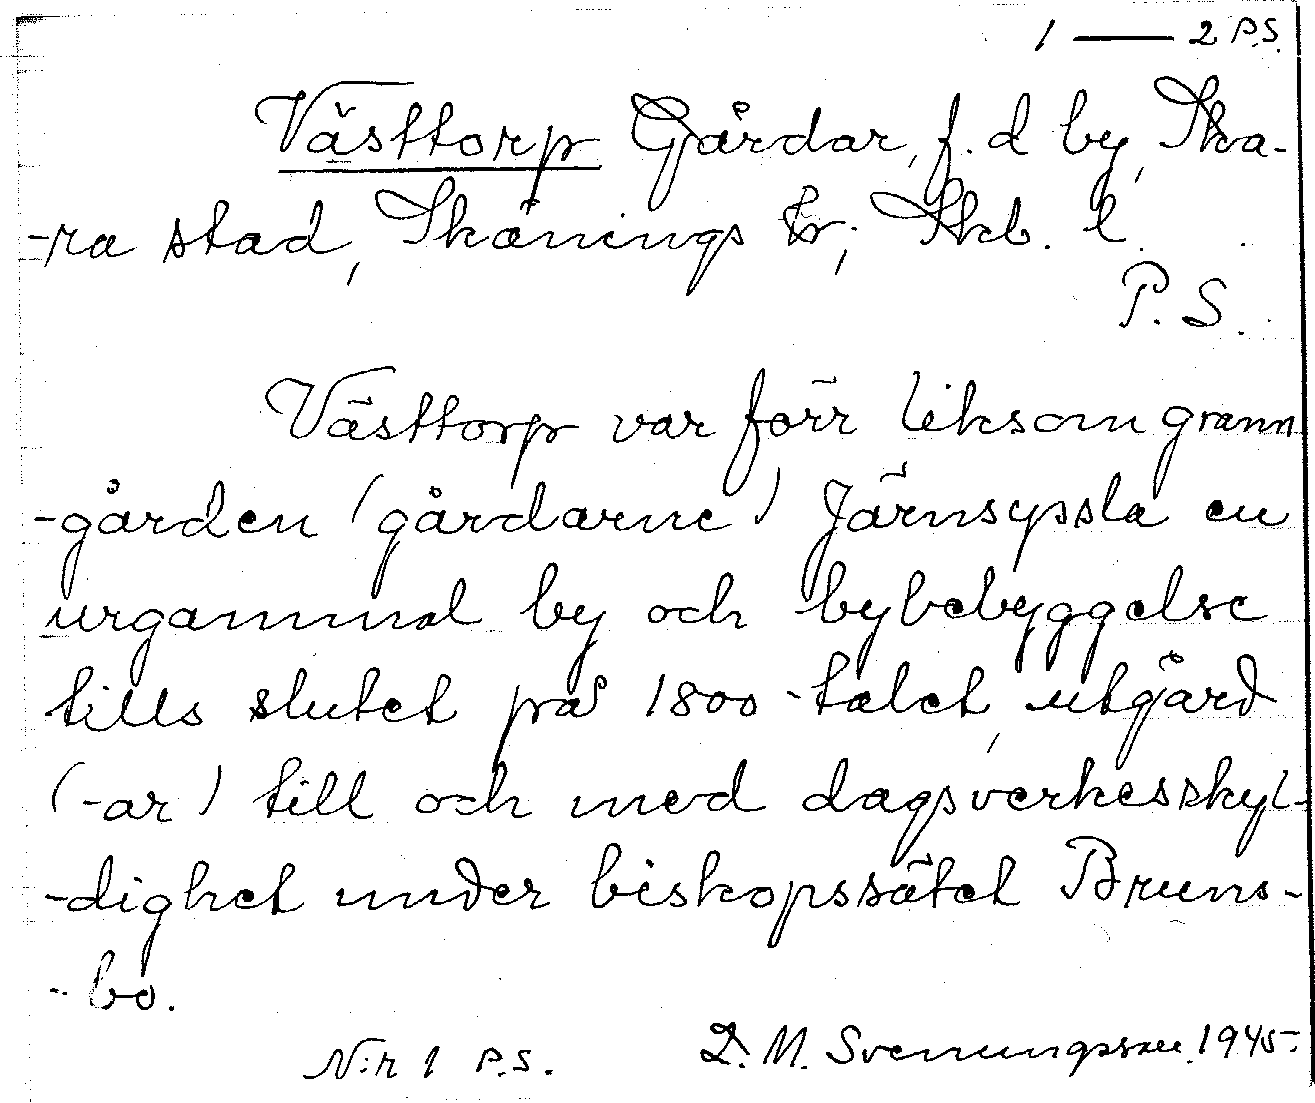 1 — 2 P.S.
Västtorp Gårdar, f. d by, Ska-
-ra stad, Skånings hr; Skb. l.
P. S.
Västtorp var förr liksom grann
-gården (gårdarne) Järnsyssla en
urgammal by och bybebyggelse
tills slutet på 1800-talet, utgård
(-ar) till och med dagsverkesskyl-
-dighet under biskopssätet Bruns-
-bo.
N:r 1 P.S.
D. M. Svenungsson. 1945.